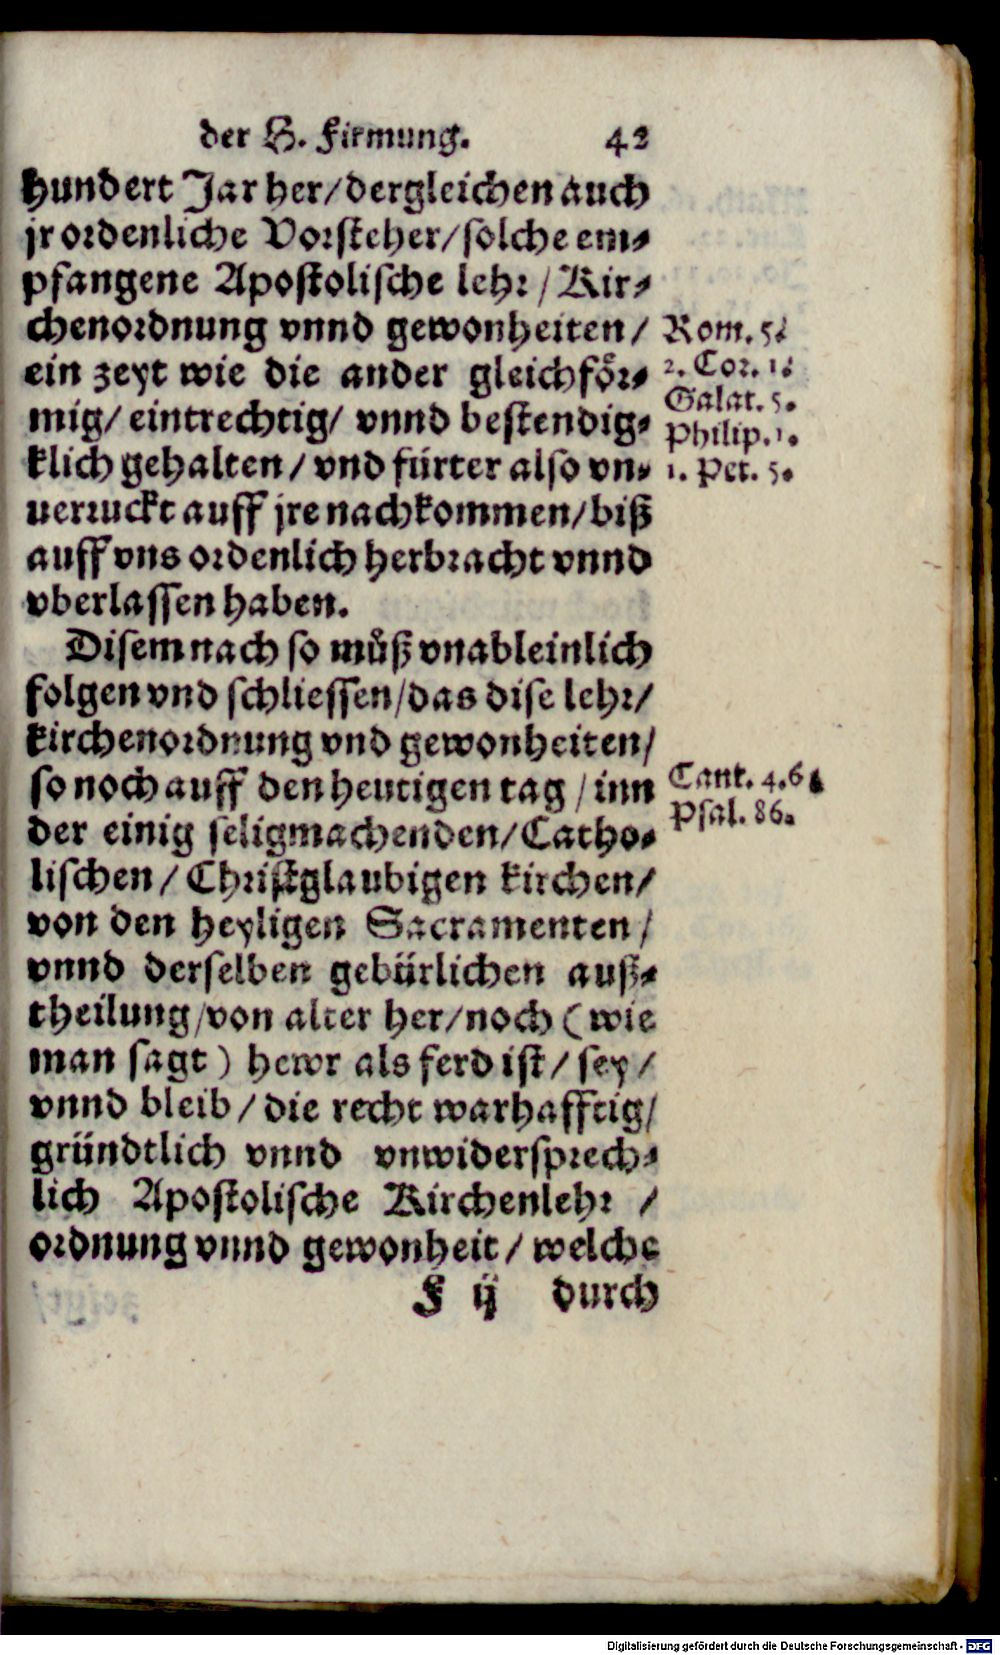 der H. Firmung. 42
hundert Jar her/dergleichen auch
jr ordenliche Vorsteher/solche em⸗
pfangene Apostolische lehr/Kir⸗
chenordnung vnnd gewonheiten/
ein zeyt wie die ander gleichför⸗
mig/eintrechtig/vnnd bestendig⸗
klich gehalten/vnd fürter also vn⸗
uerruckt auff jre nachkommen/biß
auff vns ordenlich herbracht vnnd
vberlassen haben.
Rom. 5.
2. Cor. 1.
Galat. 5.
Philip. 1.
1. Pet. 5.
Disem nach so můß vnableinlich
folgen vnd schliessen/das dise lehr/
kirchenordnung vnd gewonheiten/
so noch auff den heutigen tag/inn
der einig seligmachenden/Catho⸗
lischen/Christglaubigen kirchen/
von den heyligen Sacramenten/
vnnd derselben gebürlichen auß⸗
theilung/von alter her/noch (wie
man sagt) hewr als ferd ist/sey/
vnnd bleib/die recht warhafftig/
gründtlich vnnd vnwidersprech⸗
lich Apostolische Kirchenlehr/
ordnung vnnd gewonheit/welche
Cant. 4.6
Psal. 86.
F ij durch
Digitalisierung gefördert durch die Deutsche Forschungsgemeinschaft - DFG